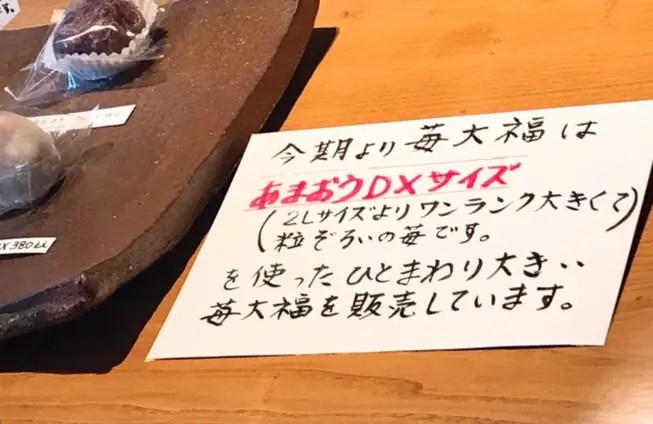 す。
X 380
今期より苺大福は
あまおうDXサイズ
(2Lサイズよりワンランク大きくて
粒ぞろいの苺です。)
を使ったひとまわり大きい
苺大福を販売しています。